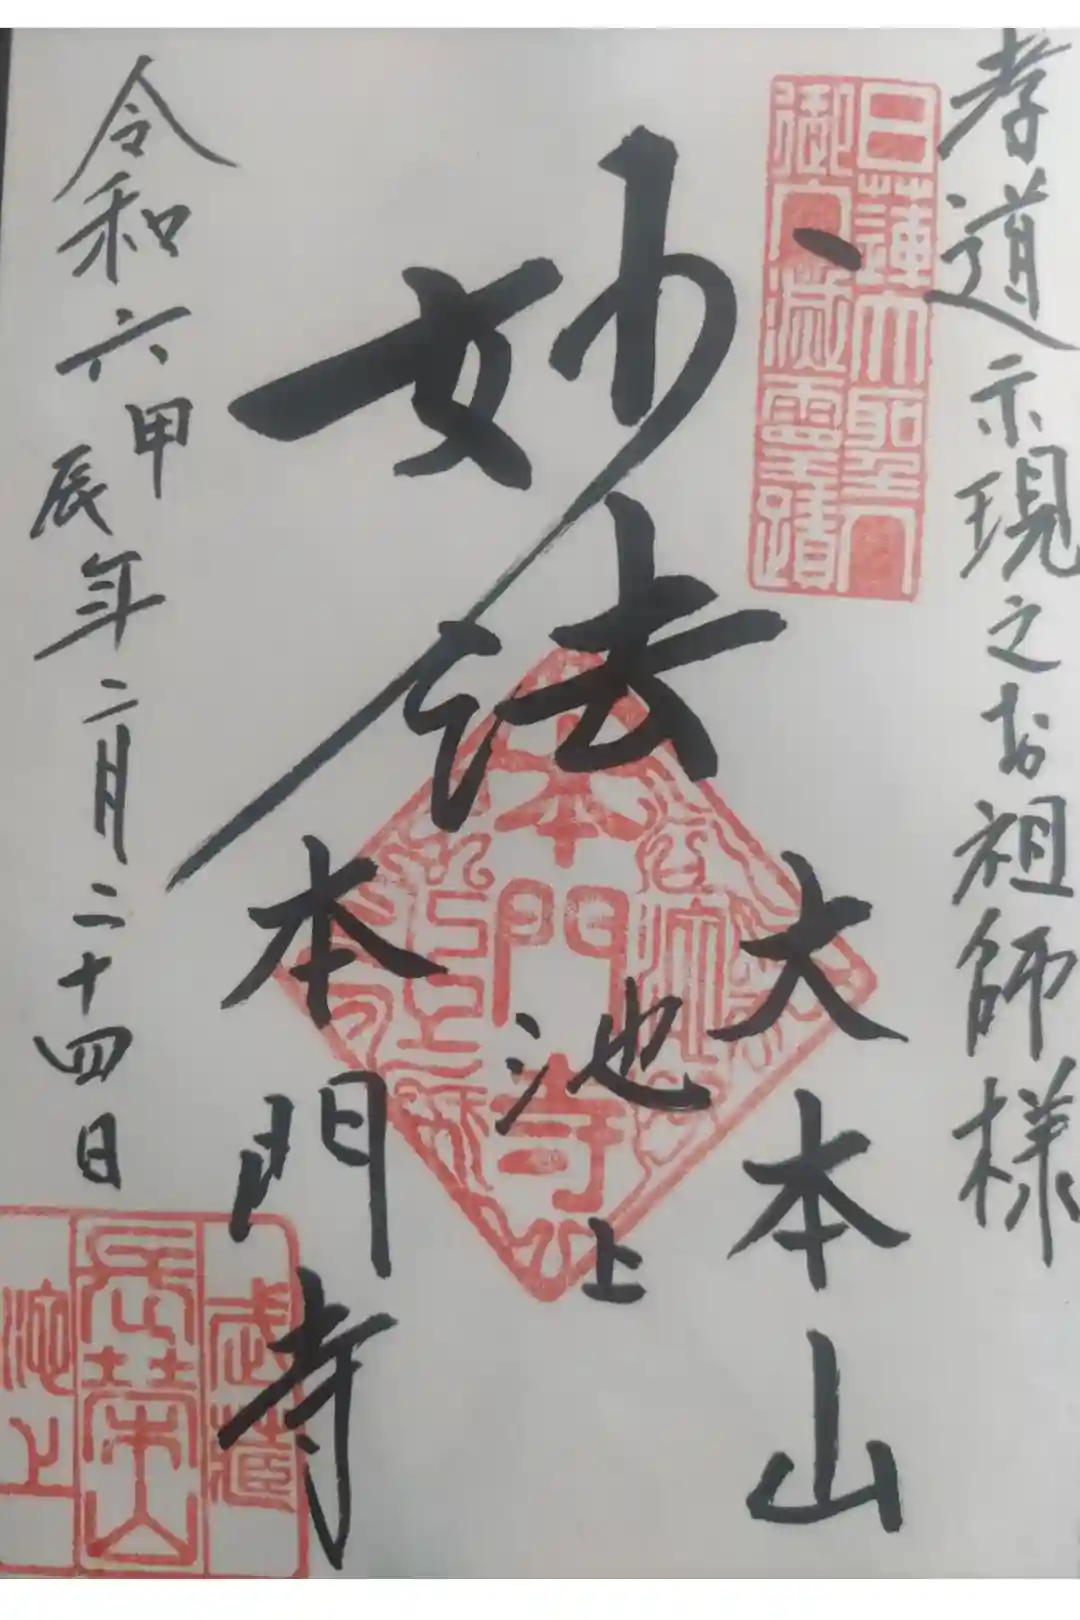 孝道示現之お祖師様
日蓮大聖人
御入滅霊蹟
妙法
大本山
池上
本門寺
本門寺
令和六甲辰年二月二十四日
武蔵
長栄山
池上